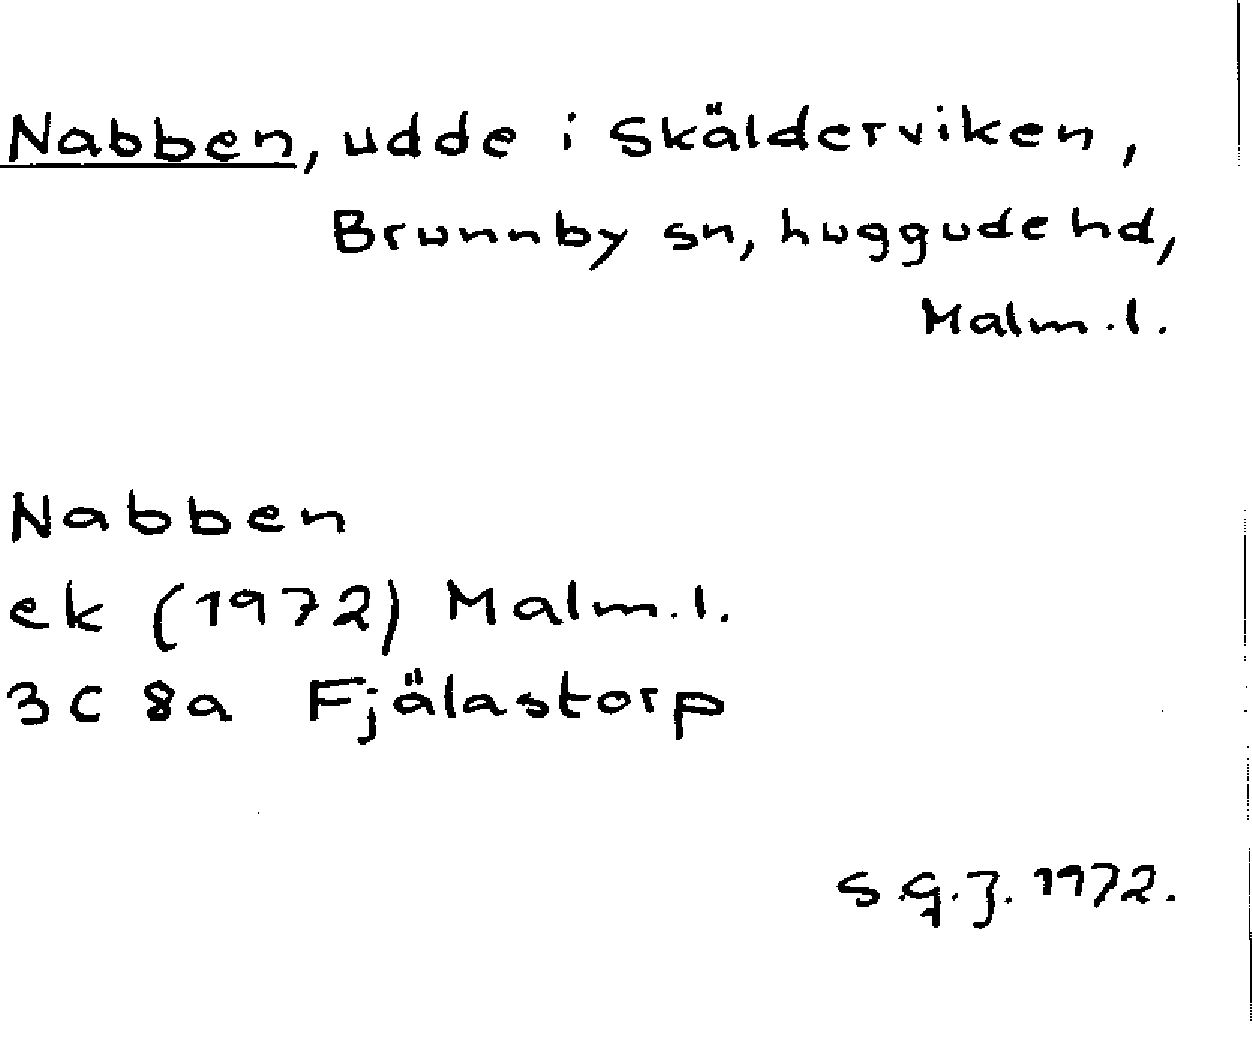 Nabben, udde i Skälderviken,
Brunnby sn, huggude hd,
Malm.l.
Nabben
ek (1972) Malm.l.
3C 8a Fjälastorp
S G.J. 1972.